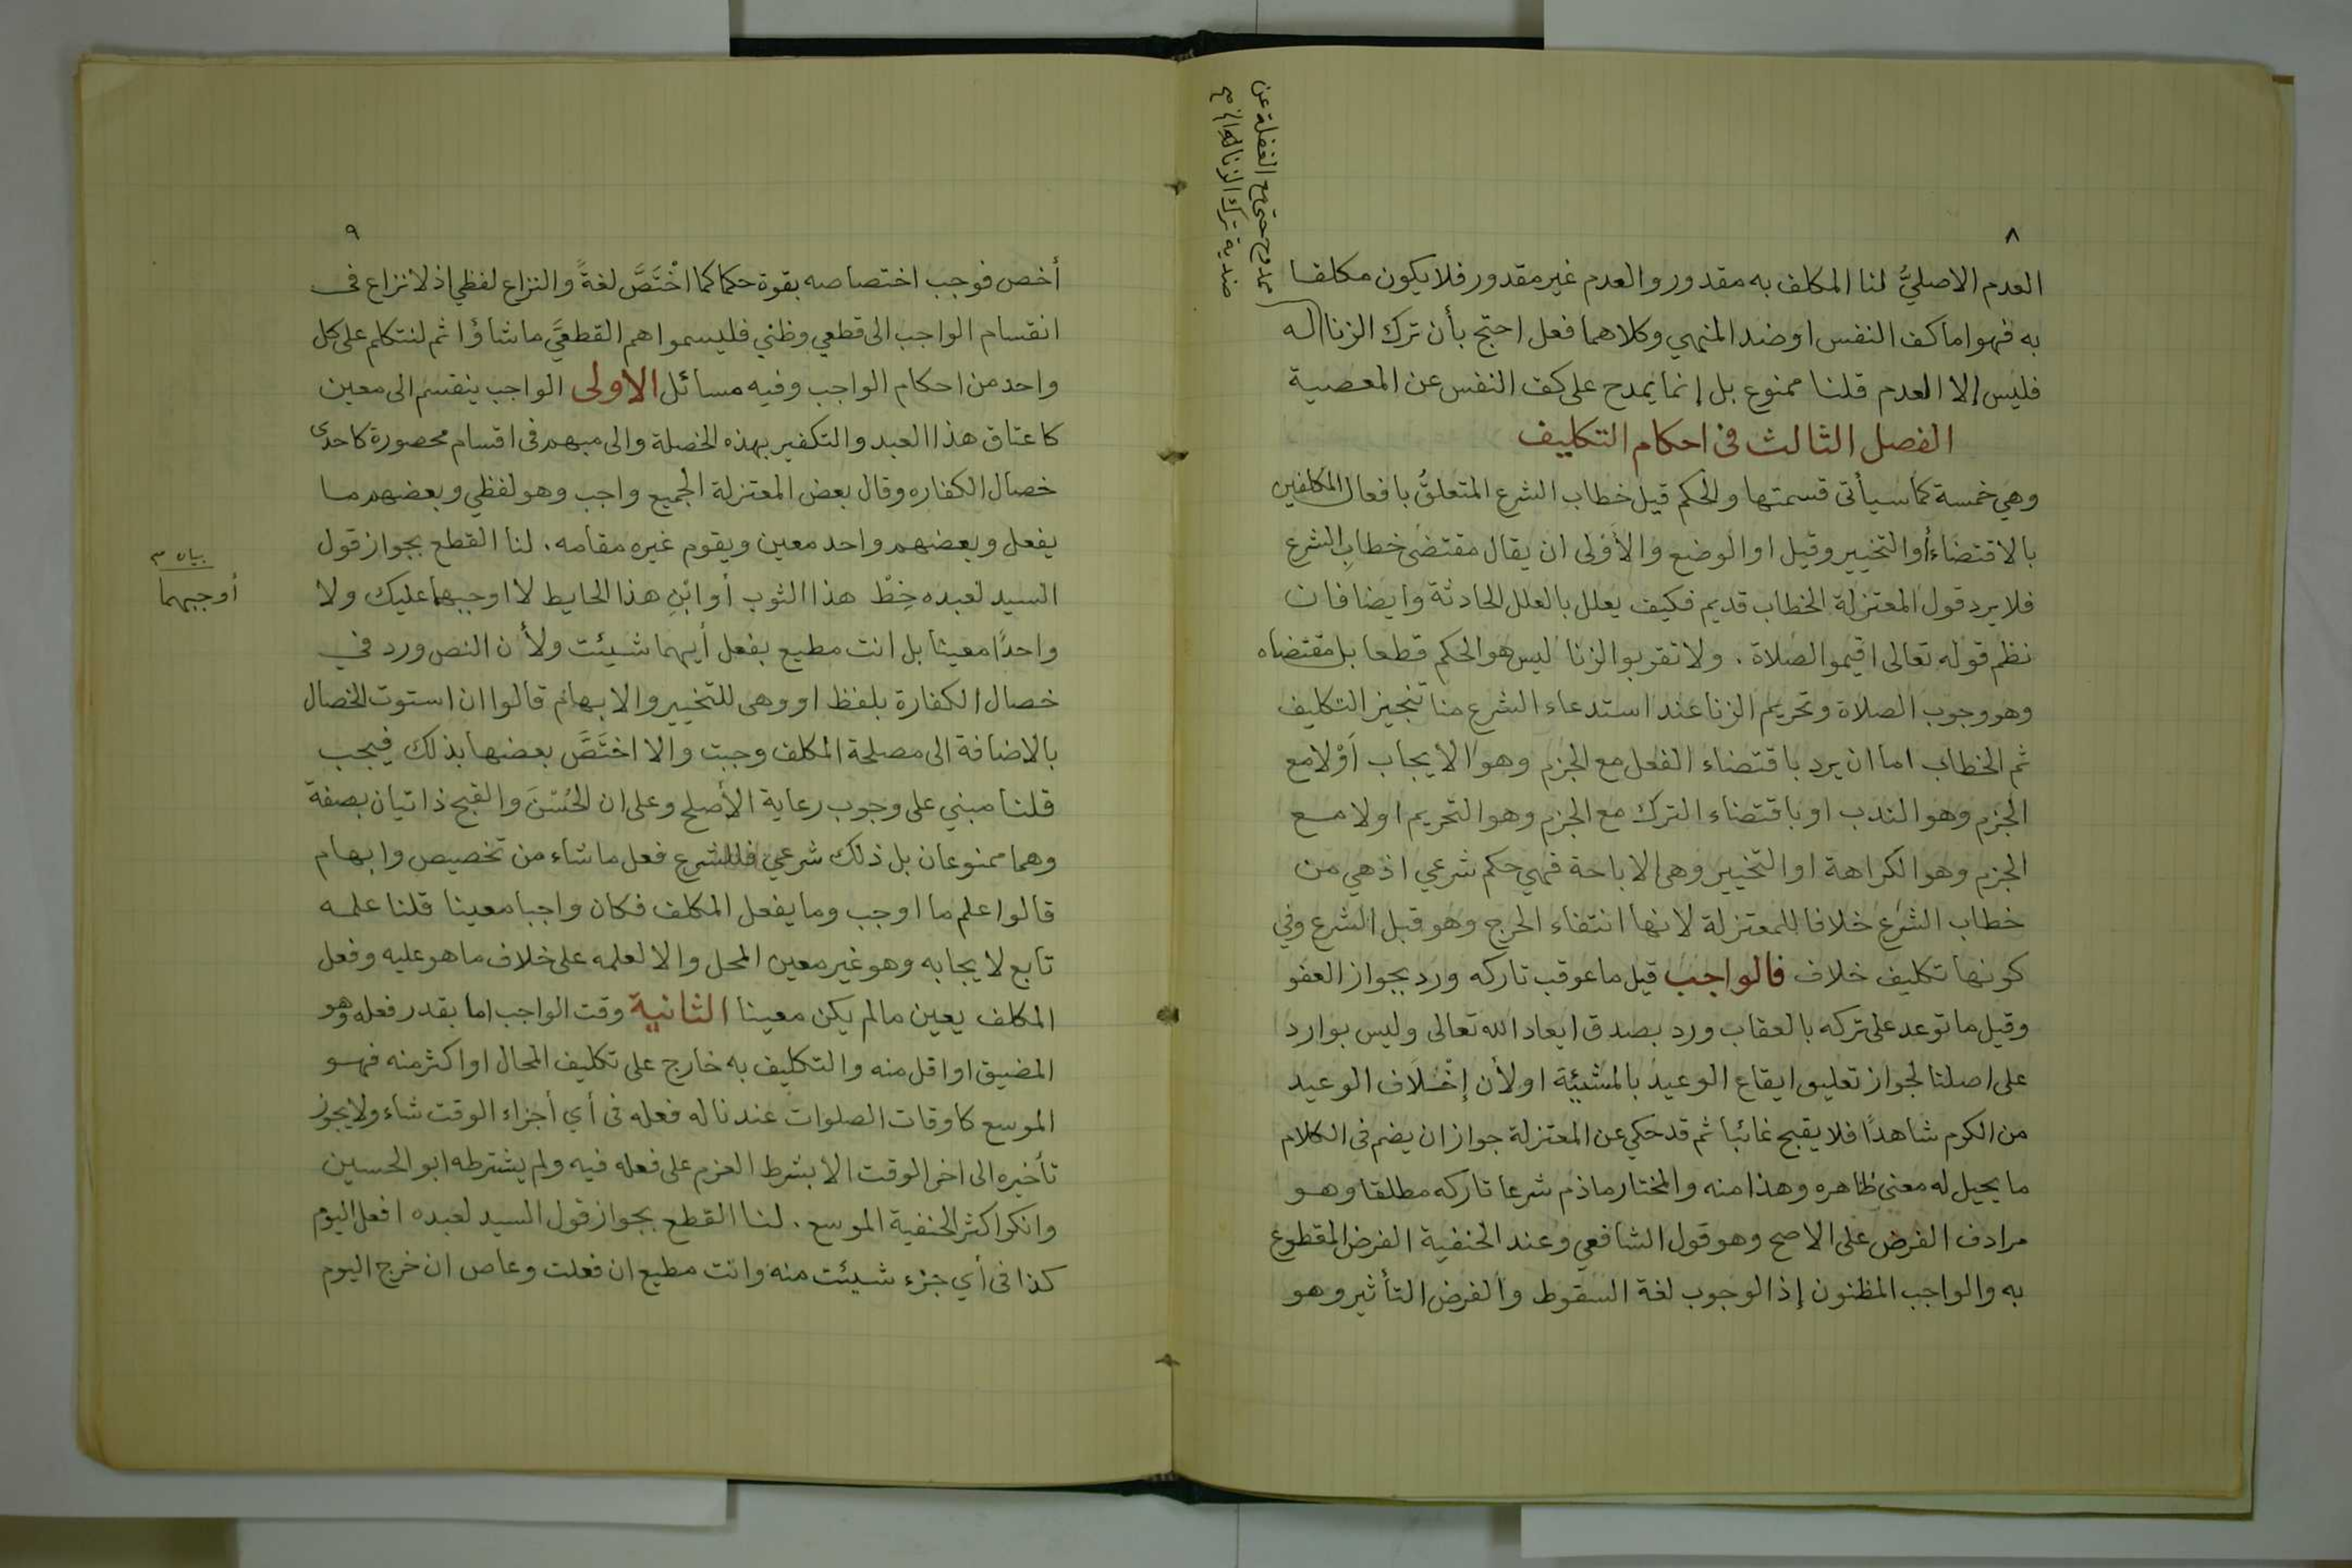 ٨
العدم الاصليُّ لنا المكلف به مقدور والعدم غير مقدور فلا يكون مكلفا
به فهو اما كف النفس او ضد المنهي وكلاهما فعل احتج بأن ترك الزنا
ممدوح حتى مع الغفلة عن
ضدية ترك الزنا
فليس إلا العدم قلنا ممنوع بل إنما يمدح على كف النفس عن المعصية
الفصل الثالث فى احكام التكليف
وهي خمسة كما سيأتى قسمتها والحكم قيل خطاب الشرع المتعلقُ بافعال المكلفين
بالاقتضاء أو التخيير وقيل او الوضع والأَوْلى ان يقال مقتضى خطابِ الشرع
فلا يرد قول المعتزلة الخطاب قديم فكيف يعلل بالعلل الحادثة وايضا فان
نظم قوله تعالى اقيموا الصلاة . ولا تقربوا الزنا ليس هو الحكم قطعا بل مقتضاه
وهو وجوب الصلاة وتحريم الزنا عند استدعاء الشرع منا تنجيز التكليف
ثم الخطاب اما ان يرد باقتضاء الفعل مع الجزم وهو الايجاب أَوْ لا مع
الجزم وهو الندب او باقتضاء الترك مع الجزم وهو التحريم او لا مع
الجزم وهو الكراهة او التخيير وهى الاباحة فهي حكم شرعي اذ هي من
خطاب الشرع خلافا للمعتزلة لانها انتفاء الحرج وهو قبل الشرع وفي
كونها تكليف خلاف فالواجب قيل ما عوقب تاركه ورد بجواز العفو
وقيل ما توعد على تركه بالعقاب ورد بصدق ايعاد الله تعالى وليس بوارد
على اصلنا لجواز تعليق ايقاع الوعيد بالمشيئة او لأن إخْلَاف الوعيد
من الكرم شاهدًا فلا يقبح غائبا ثم قد حكي عن المعتزلة جواز ان يضم فى الكلام
ما يحيل له معنى ظاهره وهذا منه والمختار ما ذم شرعا تاركه مطلقا وهو
مرادف الفرض على الاصح وهو قول الشافعي وعند الحنفية الفرض المقطوع
به والواجب المظنون إذ الوجوب لغة السقوط والفرض التأثير وهو
٩
أخص فوجب اختصاصه بقوة حكما كما اخْتَصَّ لغةً والنزاع لفظي اذ لا نزاع فى
انقسام الواجب الى قطعي وظني فليسموا هم القطعيَّ ما شاؤا ثم لنتكلم على كل
واحد من احكام الواجب وفيه مسائل الاولى الواجب ينقسم الى معين
كاعتاق هذا العبد والتكفير بهذه الخصلة والى مبهم فى اقسام محصورة كاحدى
خصال الكفاره وقال بعض المعتزلة الجميع واجب وهو لفظي وبعضهم ما
يفعل وبعضهم واحد معين ويقوم غيره مقامه . لنا القطع بجواز قول
السيد لعبده خِطْ هذا الثوب أو ابْنِ هذا الحايط لا اوجبهما عليك ولا
بيان
أوجبهما
واحدًا معينا بل انت مطيع بفعل أيهما شيئت ولأن النص ورد في
خصال الكفارة بلفظ او وهى للتخيير والابهام قالوا ان استوت الخصال
بالاضافة الى مصلحة المكلف وجبت والا اختَصَّ بعضها بذلك فيجب
قلنا مبني على وجوب رعاية الأصلح وعلى ان الحُسْنَ والقبح ذاتيان بصفة
وهما ممنوعان بل ذلك شرعي فللشرع فعل ما شاء من تخصيص وابهام
قالوا علم ما اوجب وما يفعل المكلف فكان واجبا معينا قلنا علمه
تابع لايجابه وهو غير معين المحل والا لعلمه على خلاف ما هو عليه وفعل
المكلف يعين ما لم يكن معينا الثانية وقت الواجب اما بقدر فعله وهو
المضيق او اقل منه والتكليف به خارج على تكليف المحال او اكثر منه فهو
الموسع كاوقات الصلوات عندنا له فعله فى أي أجزاء الوقت شاء ولا يجوز
تأخيره الى اخر الوقت الا بشرط العزم على فعله فيه ولم يشترطه ابو الحسين
وانكر اكثر الحنفية الموسع . لنا القطع بجواز قول السيد لعبده افعل اليوم
كذا فى أي جزء شيئت منه وانت مطيع ان فعلت وعاص ان خرج اليوم